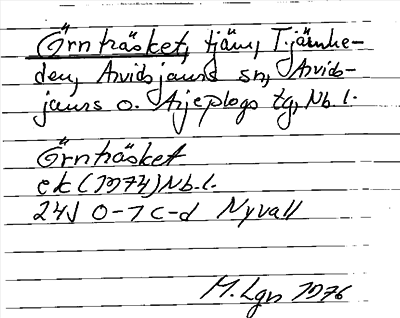 Örnträsket, tjärn, Tjärnhe-
den, Arvidsjaurs sn, Arvids-
jaurs o. Arjeplogs tg, Nb.l.
Örnträsket
ek (1974) Nb.l.
24J 0-1 c-d Nyvall
M. Lgn 1976